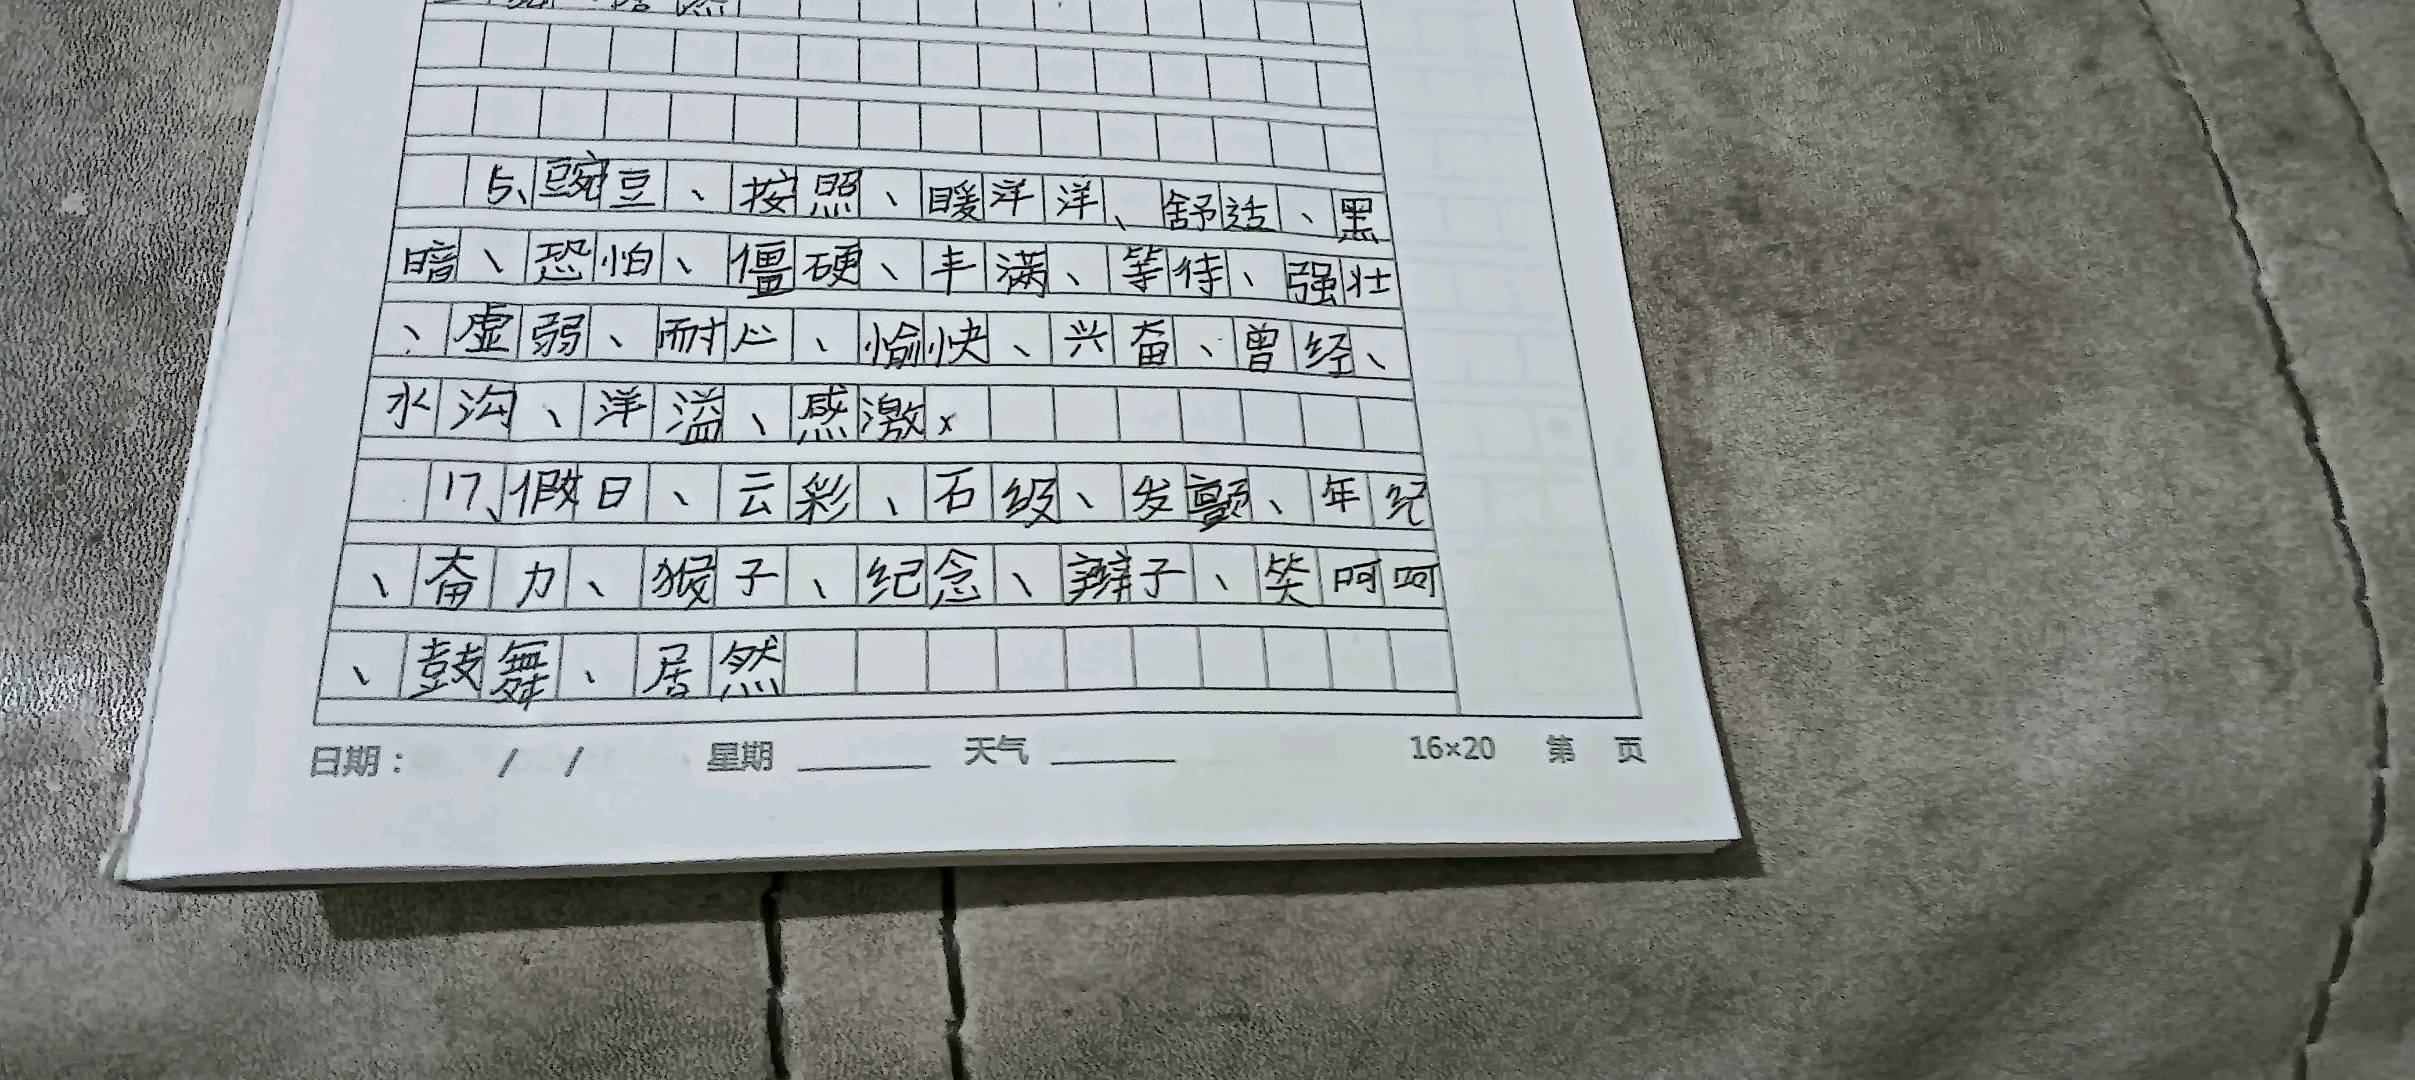 5、豌豆、按照、暖洋洋、舒适、黑
暗、恐怕、僵硬、丰满、等待、强壮
、虚弱、耐心、愉快、兴奋、曾经、
水沟、洋溢、感激x
17、假日、云彩、石级、发颤、年纪
、奋力、猴子、纪念、辫子、笑呵呵
、鼓舞、居然
日期： / / 星期 天气 16×20 第 页